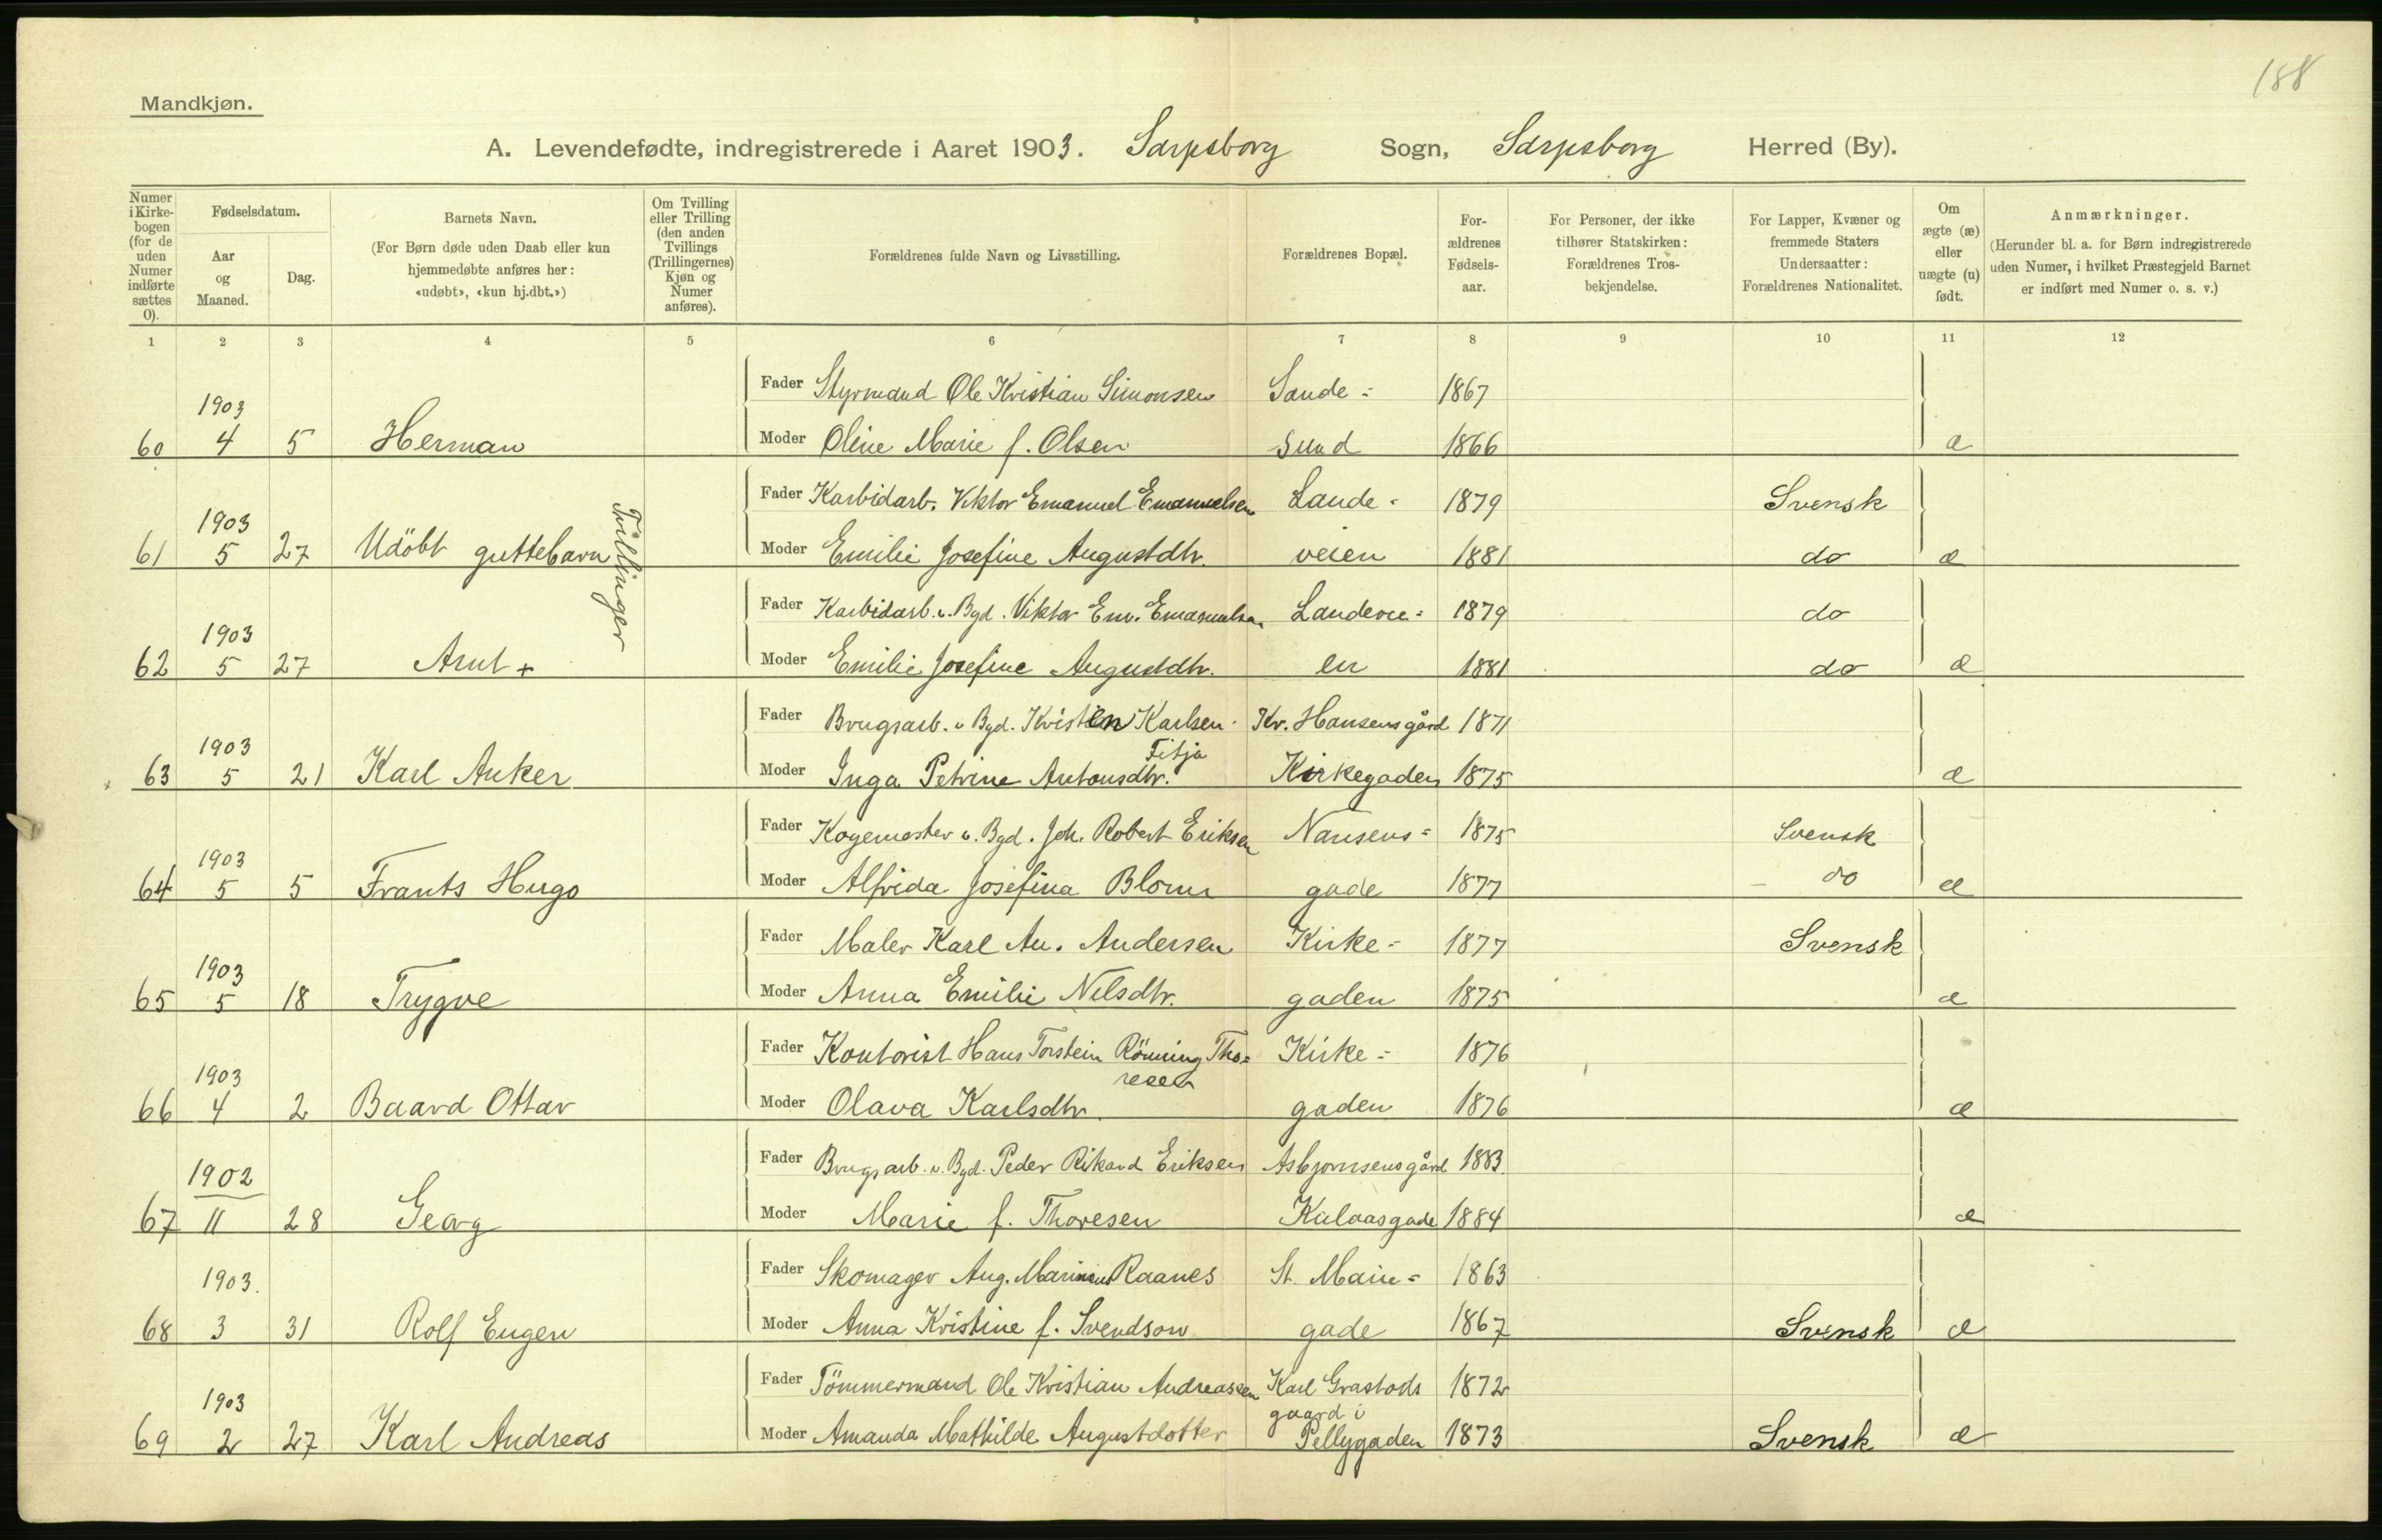 188
Mandkjøn.
A. Levendefødte, indregistrerede i Aaret 1903. Sarpsborg Sogn, Sarpsborg Herred (By).
Numer i Kirke-bogen (for de uden Numer indførte sættes 0).
Fødselsdatum.
Aar og Maaned.
Dag.
Barnets Navn.
(For Børn døde uden Daab eller kun hjemmedøbte anføres her: «udøbt», «kun hj.dbt.»)
Om Tvilling eller Trilling (den anden Tvillings (Trillingernes) Kjøn og Numer anføres).
Forældrenes fulde Navn og Livsstilling.
Forældrenes Bopæl.
For-ældrenes Fødsels-aar.
For Personer, der ikke tilhører Statskirken: Forældrenes Tros-bekjendelse.
For Lapper, Kvæner og fremmede Staters Undersaatter: Forældrenes Nationalitet.
Om ægte (æ) eller uægte (u) født.
Anmærkninger.
(Herunder bl. a. for Børn indregistrerede uden Numer, i hvilket Præstegjeld Barnet er indført med Numer o. s. v.)
1 2 3 4 5 6 7 8 9 10 11 12
1903 Fader Styrmand Ole Kristian Simonsen Sande- 1867
60 4 5 Herman Moder Oline Marie f. Olsen sund 1866 æ
1903 Fader Karbidarb. Viktor Emanuel Emanuelsen Lande- 1879 Svensk
61 5 27 Udöbt guttebarn Moder Emilie Josefine Augustdtr. veien 1881 do æ
Tvillinger
1903 Fader Karbidarb. v. Bgd. Viktor Em. Emanuelsen Landevei- 1879 do
62 5 27 Arnt + Moder Emilie Josefine Augustdtr. en 1881 do æ
1903 Fader Brugsarb. v Bgd. Kristen Karlsen Kr. Hansensgård 1871
Titja
63 5 21 Karl Anker Moder Inga Petrine Antonsdtr. Kirkegaden 1875 æ
1903 Fader Kogemester v. Bgd. Joh. Robert Eriksen Nansens- 1875 Svensk
64 5 5 Frants Hugo Moder Alfrida Josefina Blom gade 1877 do æ
1903 Fader Maler Karl An. Andersen Kirke- 1877 Svensk
65 5 18 Trygve Moder Anna Emilie Nilsdtr. gaden 1875 æ
1903 Fader Kontorist Hans Torstein Rönning Tho- Kirke- 1876
resen
66 4 2 Baard Ottar Moder Olava Karlsdtr. gaden 1876 æ
1902 Fader Brugsarb. v. Bgd. Peder Rikard Eriksen Asbjornsensgård 1883
67 11 28 Georg Moder Marie f. Thoresen Kulaasgade 1884 æ
1903. Fader Skomager Aug. Marinius Raanes St. Marie- 1863
68 3 31 Rolf Eugen Moder Anna Kristine f. Svendson gade 1867 Svensk æ
1903 Fader Tömmermand Ole Kristian Andreassen Karl Grastods 1872
gaard i
69 2 27 Karl Andreas Moder Amanda Mathilde Augustdotter Pellygaden 1873 Svensk æ